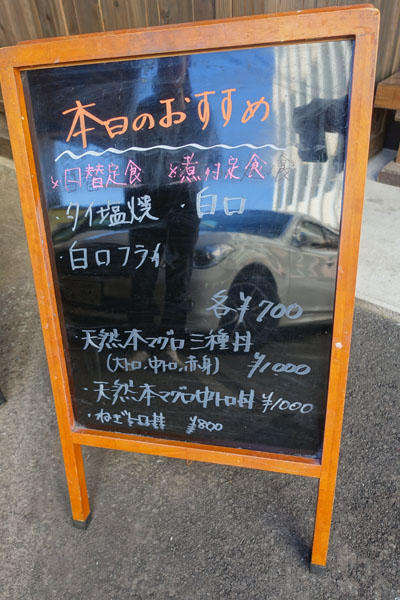 本日のおすすめ
×日替定食 ×煮付定食
・タイ塩焼 ・白口
・白口フライ
各¥700
・天然本マグロ三種丼
(大トロ,中トロ,赤身) ¥1000
・天然本マグロ中トロ丼 ¥1000
・ねぎトロ丼 ¥800